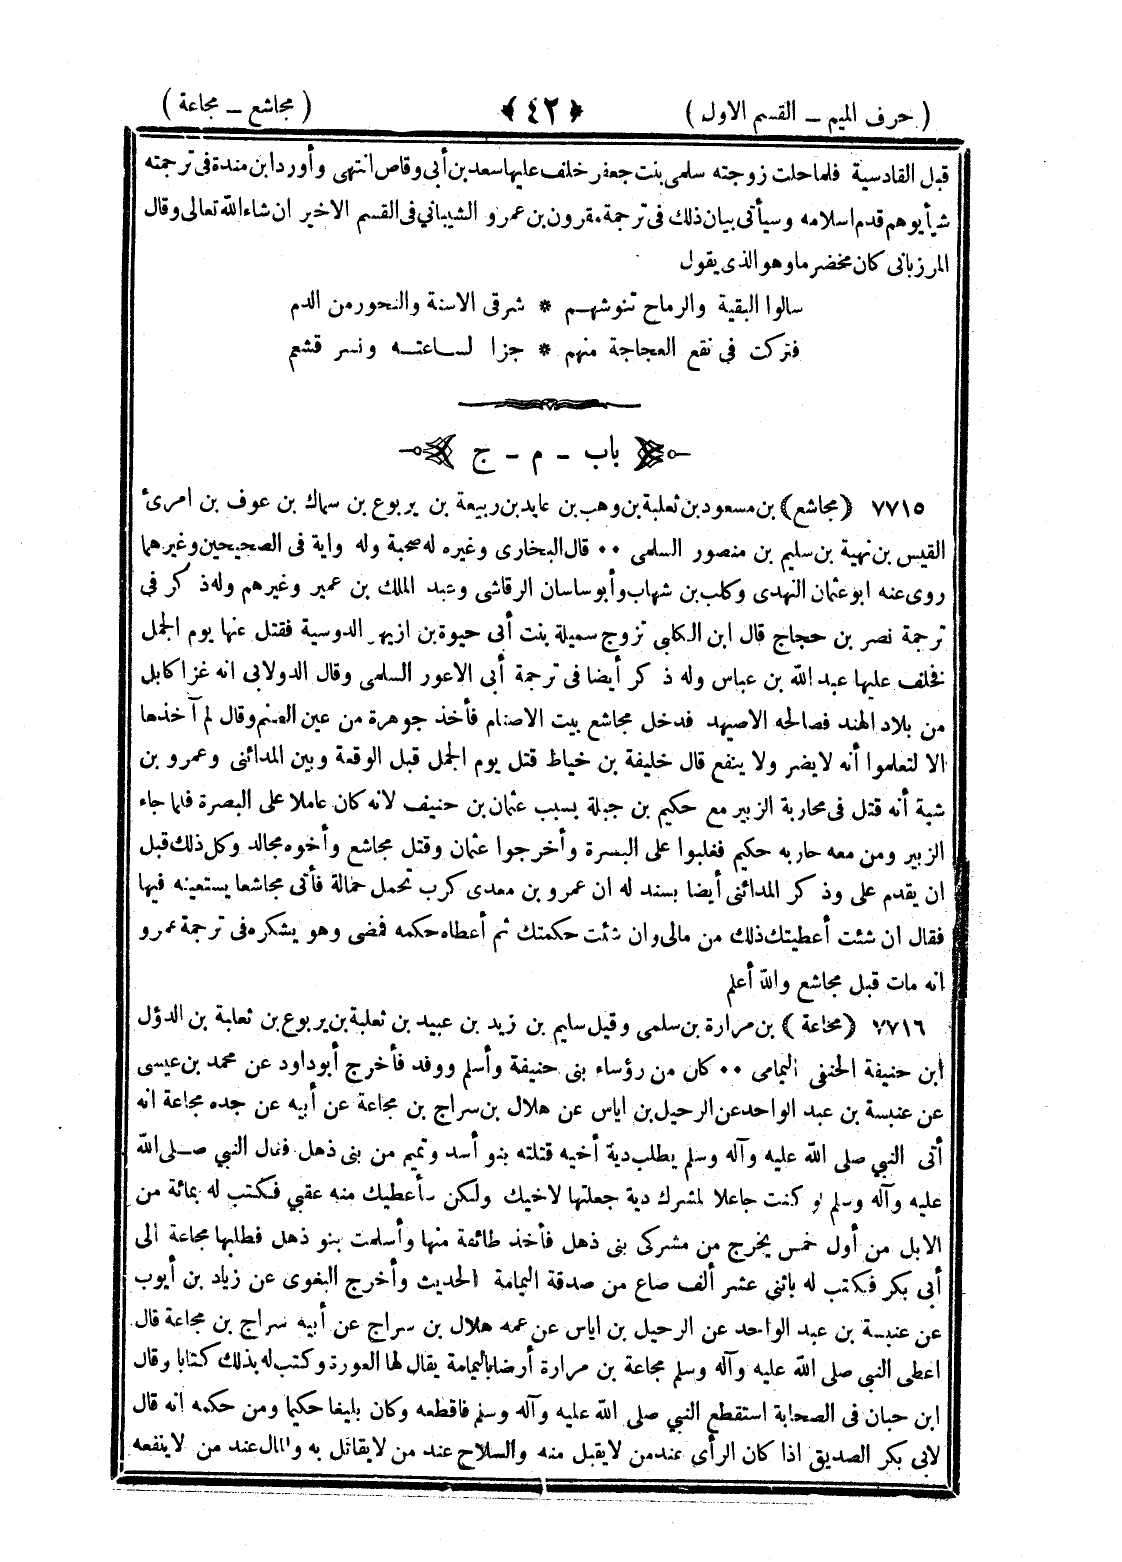 ( حرف الميم ــ القسم الاول ) ﴿ ٤٢ ﴾ ( مجاشع ــ مجاعة )
قبل القادسية فلما حلت زوجته سلمى بنت جعفر خلف عليها سعد بن أبي وقاص انتهى وأورد ابن مندة فى ترجمته
شيأ يوهم قدم اسلامه وسيأتى بيان ذلك فى ترجمة مقرون بن عمرو الشيبانى فى القسم الاخير ان شاء الله تعالى وقال
المرزبانى كان مخضرما وهو الذى يقول
سالوا البقية والرماح تنوشهم * شرقى الاسنة والنحور من الدم
فتركت فى نقع العجاجة منهم * جزا لساعته ونسر قشعم
باب - م - ج
٧٧١٥ ( مجاشع ) بن مسعود بن ثعلبة بن وهب بن عايد بن ربيعة بن يربوع بن سماك بن عوف بن امرئ
القيس بن نهية بن سليم بن منصور السلمى ٠٠ قال البخارى وغيره له صحبة وله واية فى الصحيحين وغيرهما
روى عنه ابو عثمان النهدى وكلب بن شهاب وأبو ساسان الرقاشى وعبد الملك بن عمير وغيرهم وله ذكر فى
ترجمة نصر بن حجاج قال ابن الكلبى تزوج سميلة بنت أبى حيوة بن ازيهر الدوسية فقتل عنها يوم الجمل
فخلف عليها عبد الله بن عباس وله ذكر أيضا فى ترجمة أبى الاعور السلمى وقال الدولابى انه غزا كابل
من بلاد الهند فصالحه الاصبهد فدخل مجاشع بيت الاصنام فأخذ جوهرة من عين الصنم وقال لم آخذها
الا لتعلموا أنه لا يضر ولا ينفع قال خليفة بن خياط قتل يوم الجمل قبل الوقعة وبين المدائنى وعمرو بن
شبة أنه قتل فى محاربة الزبير مع حكيم بن جبلة بسبب عثمان بن حنيف لانه كان عاملا على البصرة فلما جاء
الزبير ومن معه حاربه حكيم فغلبوا على البسرة وأخرجوا عثمان وقتل مجاشع وأخوه مجالد وكل ذلك قبل
ان يقدم على وذكر المدائنى أيضا بسند له ان عمرو بن معدى كرب تحمل حمالة فأتى مجاشعا يستعينه فيها
فقال ان شئت أعطيتك ذلك من مالى وان شئت حكمتك ثم أعطاه حكمه فمضى وهو يشكره فى ترجمة عمرو
انه مات قبل مجاشع والله أعلم
٧٧١٦ ( مجاعة ) بن مرارة بن سلمى وقيل سليم بن زيد بن عبيد بن ثعلبة بن يربوع بن ثعلبة بن الدؤل
ابن حنيفة الحنفى اليمامى ٠٠ كان من رؤساء بنى حنيفة وأسلم ووفد فأخرج أبو داود عن محمد بن عيسى
عن عنبسة بن عبد الواحد عن الرحيل بن اياس عن هلال بن سراج بن مجاعة عن أبيه عن جده مجاعة انه
أتى النبي صلى الله عليه وآله وسلم يطلب دية أخيه قتلته بنو أسد وتميم من بنى ذهل فقال النبي صلى الله
عليه وآله وسلم لو كنت جاعلا لمشرك دية جعلتها لاخيك ولكن سأعطيك منه عقبي فكتب له بمائة من
الابل من أول خمس يخرج من مشركى بنى ذهل فأخذ طائفة منها وأسلمت بنو ذهل فطلبها مجاعة الى
أبى بكر فكتب له باثني عشر ألف صاع من صدقة اليمامة الحديث وأخرج البغوى عن زياد بن أيوب
عن عنبسة بن عبد الواحد عن الرحيل بن اياس عن عمه هلال بن سراج عن أبيه سراج بن مجاعة قال
اعطى النبي صلى الله عليه وآله وسلم مجاعة بن مرارة أرضا باليمامة يقال لها العورة وكتب له بذلك كتابا وقال
ابن حبان فى الصحابة استقطع النبي صلى الله عليه وآله وسلم فاقطعه وكان بليغا حكيما ومن حكمه انه قال
لابى بكر الصديق اذا كان الرأى عند من لا يقبل منه والسلاح عند من لا يقاتل به والمال عند من لا ينفعه